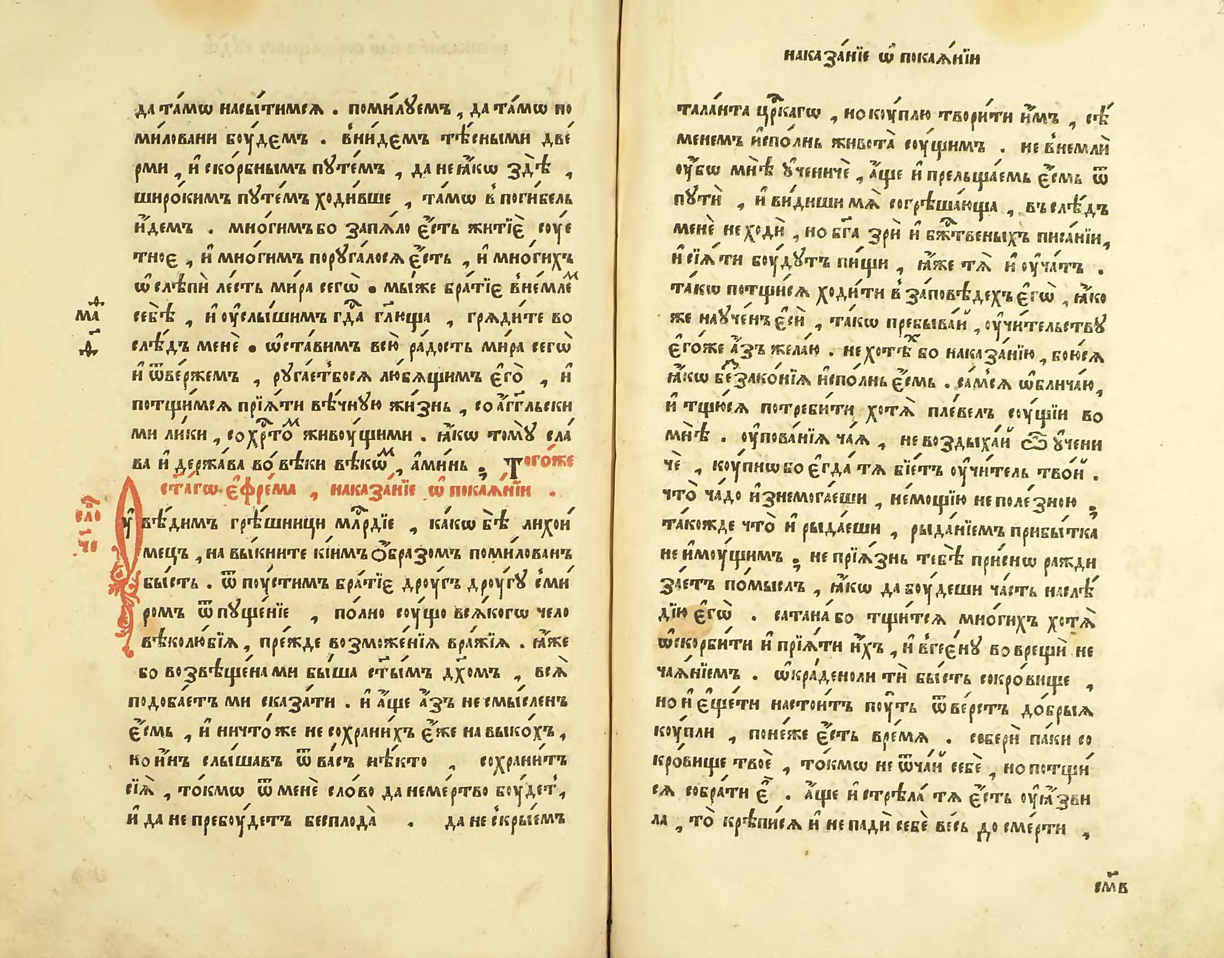 да та́мѡ насы́тимсѧ . поми́лꙋемъ , да та́мѡ по
ми́ловани бꙋ́демъ . вни́демъ тѣ́сными две́
рми , и҆ ско́рбнымъ пꙋте́мъ , да не ꙗ҆́кѡ здѣ̀ ,
широ́кимъ пꙋте́мъ ходи́вше , та́мѡ в поги́бель
и҆́демъ . мно́гимъ бо запѧ́ло є҆́сть житїѐ сꙋе́
тное , и҆ мно́гимъ порꙋга́лосѧ є҆́сть , и҆ мно́гихъ
ѡ҆слѣпѝ ле́сть ми́ра сегѡ̀ . мы́ же бра́тїе вне́млеⷨ
себѣ̀ , и҆ ᲂу҆слы́шимъ гдⷭ҇а гл҃юща , грѧди́те во
ма
д҃
слѣ́дъ менѐ . ѡ҆ста́вимъ всю̀ ра́дость ми́ра сегѡ̀
и҆ ѿве́ржемъ , рꙋга́етбосѧ лю́бѧщимъ є҆гѡ̀ , и҆
потщи́мсѧ прїѧ́ти вѣ́чнꙋю жи́знь , со а҆́гг҃льски
ми ли́ки , со хрⷭ҇то́ⷨ живꙋ́щими . ꙗ҆́кѡ томꙋ̀ сла́
ва и҆ держа́ва во вѣ́ки вѣкѡ́ⷨ , а҆ми́нь ; Тогѡ́же
ст҃а́гѡ є҆фре́ма , наказа́нїе ѡ҆ покаѧ́нїи .
сло́
ч҃о
ᲂу҆вѣ́димъ грѣ́шницы млⷭ҇рдїе , ка́кѡ бѣ̀ лихои́
мецъ , навы́кните кі́имъ о҆́бразомъ поми́лованъ
бы́сть . ѿпꙋ́стимъ бра́тїе дрꙋ́гъ дрꙋ́гꙋ с ми́
ромъ ѿпꙋще́нїе , по́лно сꙋ́що всѧ́когѡ чело
вѣколю́бїѧ , пре́жде возможе́нїѧ вра́жїѧ . ꙗ҆́же
бо возвѣщена ми бы́ша ст҃ы́мъ дх҃омъ , всѧ̀
подоба́етъ ми сказа́ти . и҆ а҆́ще а҆́зъ несмы́сленъ
є҆́смь , и҆ ничто́же не сохрани́хъ є҆́же навыко́хъ ,
но и҆́нъ слы́шавъ ѿ ва́съ нѣ́кто , сохрани́тъ
сїѧ̀ , то́кмѡ ѿ менѐ сло́во да не ме́ртво бꙋ́детъ ,
и҆ да не пребꙋ́детъ бесплода̀ . да не скры́емъ
наказа́нїе ѡ҆ покаѧ́нїи
тала́нта црⷭ҇кагѡ , но кꙋ́плю твори́ти и҆́мъ , сѣ́
менемъ и҆спо́лнь живота̀ сꙋ́щимъ . не внемлѝ
ᲂу҆́бѡ мнѣ̀ ᲂу҆чени́че , а҆́ще и҆ прельща́емь є҆́смь ѿ
пꙋтѝ , и҆ ви́диши мѧ̀ согрѣша́юща , въ слѣ́дъ
менѐ не ходѝ , но бг҃а зрѝ и҆ бжⷭ҇твеныхъ писа́нїи ,
и҆ сїѧ́ ти бꙋ́дꙋтъ пи́щи , ꙗ҆́же тѧ̀ и҆ ᲂу҆ча́тъ .
та́кѡ потщи́сѧ ходи́ти в за́повѣдехъ є҆гѡ̀ , ꙗ҆́ко
же наꙋче́нъ є҆сѝ , та́кѡ пребыва́й , ᲂу҆чи́тельствꙋ
є҆гѡ́же а҆́зъ жела́ю . не хотѣ́ⷯ бо наказа́нїю , бою́сѧ
ꙗ҆́кѡ беⷥзако́нїѧ и҆спо́лнь є҆́смь . са́мсѧ ѡ҆блича́ю ,
и҆ тщю́сѧ потреби́ти хотѧ̀ пле́велъ сꙋ́щїи во
мнѣ̀ . ᲂу҆пова́нїѧ ча́ѧ , не воздыха́й ѽ ᲂу҆чени́
че , кꙋ́пнѡ бо є҆гда́ тѧ бїе́тъ ᲂу҆чи́тель тво́и .
что̀ ча́до и҆знемога́еши , не́мощїю не поле́зною ;
та́кожде что̀ и҆ рыда́еши , рыда́нїемъ прибы́тка
не и҆мꙋ́щимъ ; не прїѧ́знь тебѣ̀ при́снѡ ражди
за́етъ по́мыслъ , ꙗ҆́кѡ да бꙋ́деши ча́сть наслѣ́
дїю є҆гѡ̀ . сатана́ бо тщи́тсѧ мно́гихъ хотѧ̀
ѡ҆скорби́ти и҆ прїѧ́ти и҆́хъ , и҆ в гее́нꙋ вовре́щи не
ча́ѧнїемъ . ѡ҆кра́дено ли тѝ бы́сть сокро́вище ,
но и҆ є҆ще́ ти настои́тъ пꙋ́ть ѿве́рстъ до́брыѧ
кꙋ́пли , поне́же є҆́сть вре́мѧ . соберѝ па́ки со
кро́вище твоѐ , то́кмѡ не ѿча́й себѐ , но потщи́
сѧ собра́ти є҆̀ . а҆́ще и҆ стрѣла́ тѧ є҆́сть ᲂу҆ꙗ҆зви́
ла , то̀ крѣпи́сѧ и҆ не падѝ себѐ ве́сь до сме́рти ,
см҃в